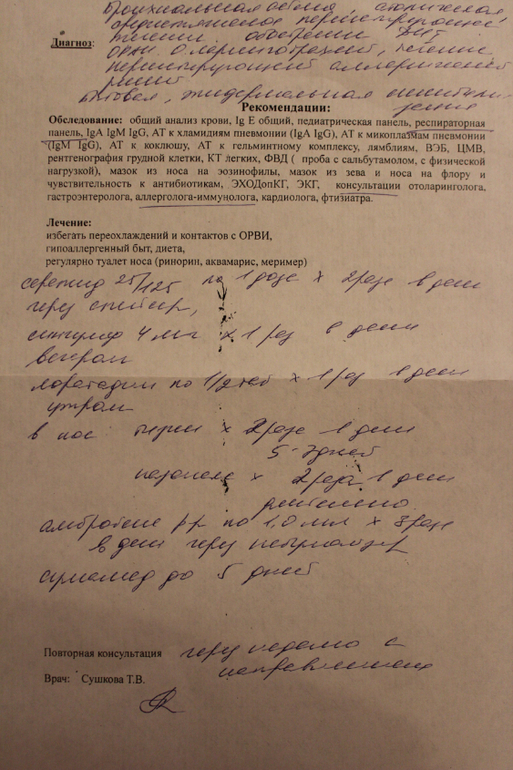 Бронхиальная астма, атопическая
персистирующее
течение, обострение. ДН1
ОРВИ о. ларинготрахеит, течение
Персистирующий аллергический
ринит
Диагноз:
Бытовая, эпидермальная сенсибили-
зация
Рекомендации:
Обследование: общий анализ крови, Ig E общий, педиатрическая панель, респираторная
панель, IgA IgM IgG, АТ к хламидиям пневмонии (IgA IgG), АТ к микоплазмам пневмонии
(IgM IgG), АТ к коклюшу, АТ к гельминтному комплексу, лямблиям, ВЭБ, ЦМВ,
рентгенография грудной клетки, КТ легких, ФВД ( проба с сальбутамолом, с физической
нагрузкой), мазок из носа на эозинофилы, мазок из зева и носа на флору и
чувствительность к антибиотикам, ЭХОДопКГ, ЭКГ, консультации отоларинголога,
гастроэнтеролога, аллерголога-иммунолога, кардиолога, фтизиатра.
Лечение:
избегать переохлаждений и контактов с ОРВИ,
гипоаллергенный быт, диета,
регулярно туалет носа (ринорин, аквамарис, меример)
серетид 25/125 по 1 дозе х 2 раза в день
через спейсер,
сингуляр 4 мг х 1 раз в день
вечером
лоратадин по 1/2 таб х 1 раз в день
утром
в нос х 2 раза в день
5 дней
назонекс х 2 раза в день
длительно
амбробене р-р по 1,0 мл х 3 раза
в день через небулайзер
сумамед до 5 дней
Повторная консультация через неделю с
направлением
Врач: Сушкова Т.В.